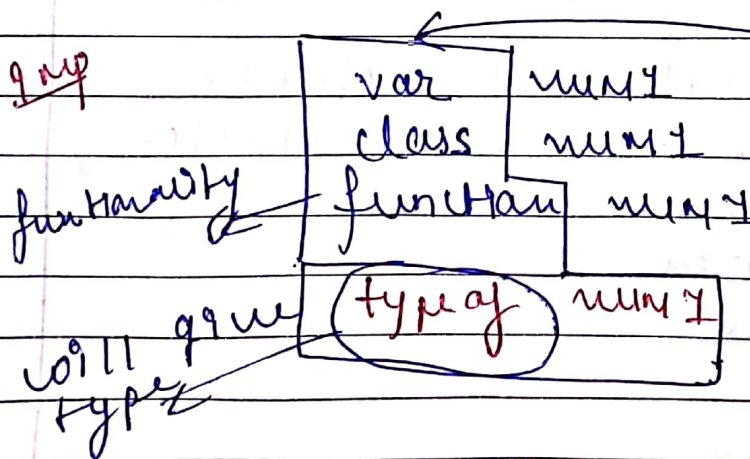 Imp
var num1
class num1
functionality function num1
will give type
typeof num1